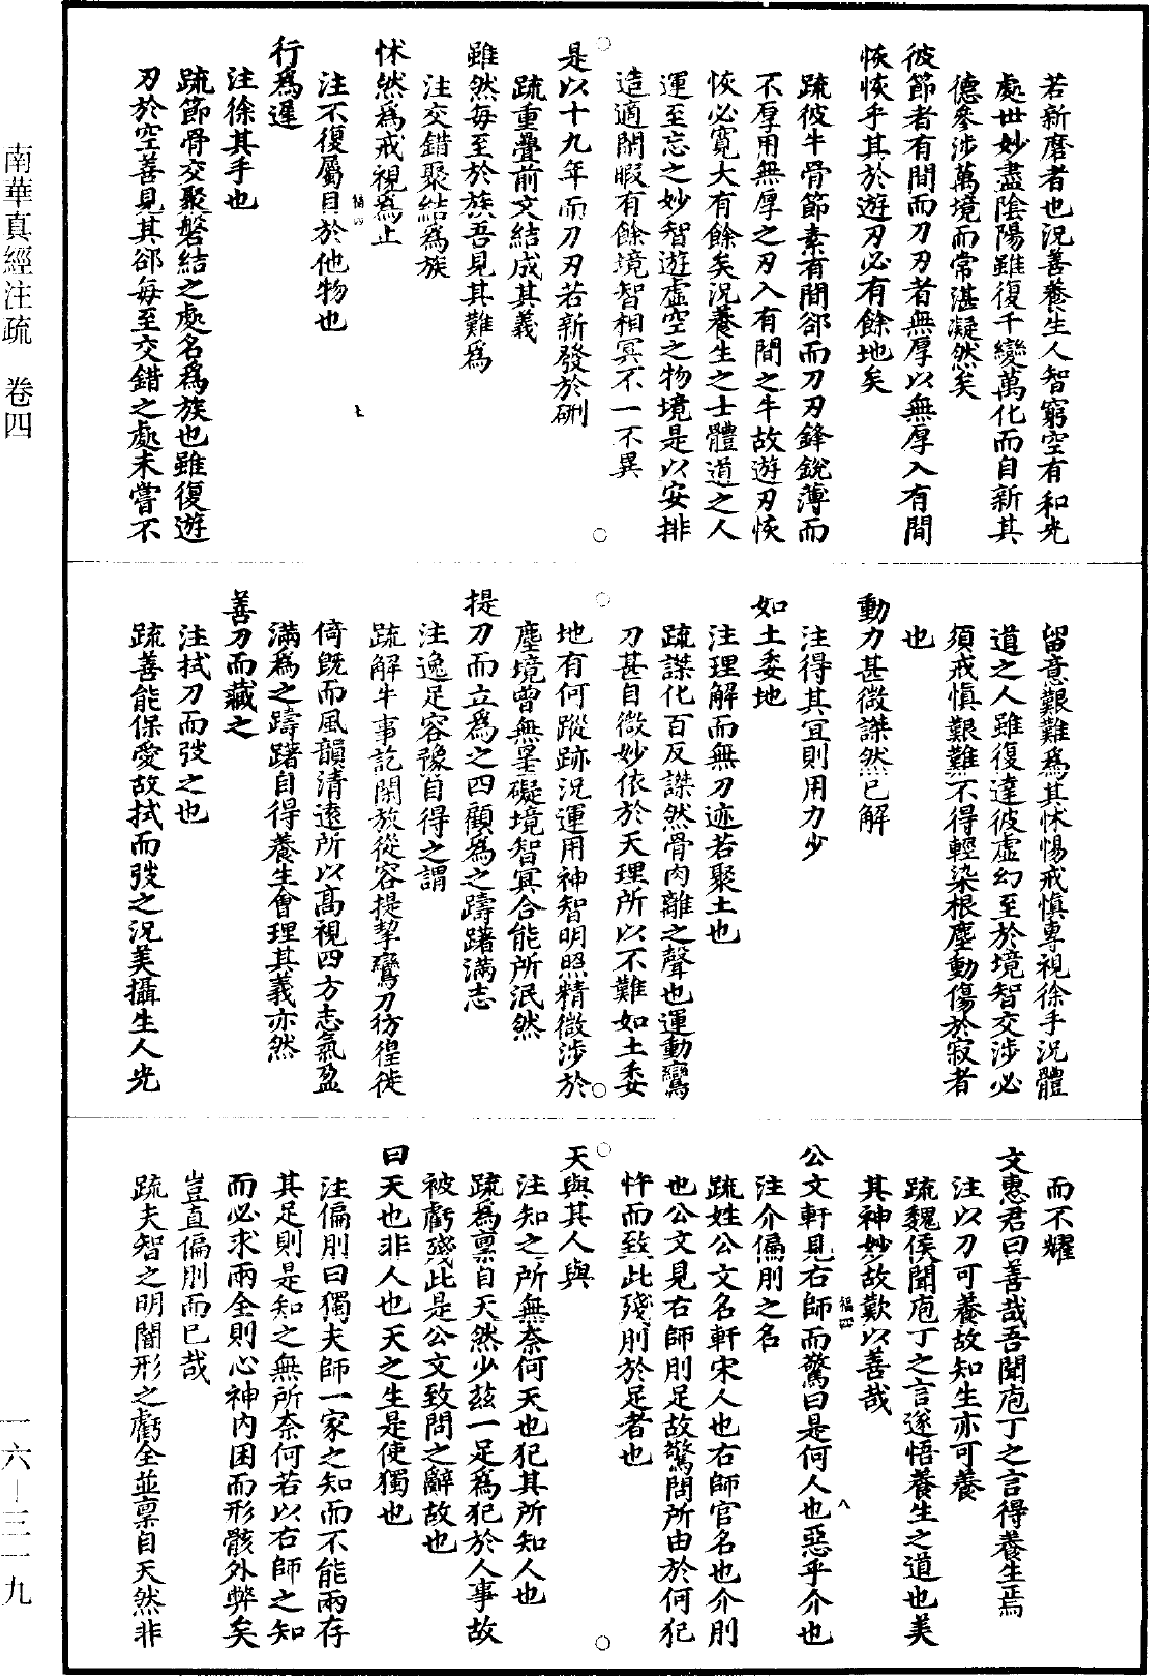 若新磨者也況善養生人智窮空有和光
處世妙盡陰陽雖復千變萬化而自新其
德參涉萬境而常湛凝然矣
彼節者有間而刀刃者無厚以無厚入有間
恢恢乎其於遊刃必有餘地矣
疏彼牛骨節素有間郤而刀刃鋒銳薄而
不厚用無厚之刃入有間之牛故遊刃恢
恢必寬大有餘矣況養生之士體道之人
運至忘之妙智遊虛空之物境是以安排
造適閑暇有餘境智相冥不一不異
是以十九年而刀刃若新發於硎
疏重疊前文結成其義
雖然每至於族吾見其難為
注交錯聚結為族
怵然為戒視為止
福四
七
注不復屬目於他物也
行為遲
注徐其手也
疏節骨交聚磐結之處名為族也雖復遊
刃於空善見其郤每至交錯之處未嘗不
留意艱難為其怵惕戒慎專視徐手況體
道之人雖復達彼虛幻至於境智交涉必
須戒慎艱難不得輕染根塵動傷於寂者
也
動刀甚微謋然已解
注得其宜則用力少
如土委地
注理解而無刀迹若聚土也
疏謋化百反謋然骨肉離之聲也運動鸞
刀甚自微妙依於天理所以不難如土委
地有何蹤跡況運用神智明照精微涉於
塵境曾無罣礙境智冥合能所泯然
提刀而立為之四顧為之躊躇滿志
注逸足容豫自得之謂
疏解牛事訖閑放從容提挈鸞刀彷徨徙
倚既而風韻清遠所以高視四方志氣盈
滿為之躊躇自得養生會理其義亦然
善刀而藏之
注拭刀而弢之也
疏善能保愛故拭而弢之況美攝生人光
而不耀
文惠君曰善哉吾聞庖丁之言得養生焉
注以刀可養故知生亦可養
疏魏侯聞庖丁之言遂悟養生之道也美
其神妙故歎以善哉
福四
八
公文軒見右師而驚曰是何人也惡乎介也
注介偏刖之名
疏姓公文名軒宋人也右師官名也介刖
也公文見右師刖足故驚問所由於何犯
忤而致此殘刖於足者也
天與其人與
注知之所無奈何天也犯其所知人也
疏為稟自天然少茲一足為犯於人事故
被虧殘此是公文致問之辭故也
曰天也非人也天之生是使獨也
注偏刖曰獨夫師一家之知而不能兩存
其足則是知之無所奈何若以右師之知
而必求兩全則心神內困而形骸外弊矣
豈直偏刖而已哉
疏夫智之明闇形之虧全並稟自天然非
南華真經注疏　卷四
一六—三一九